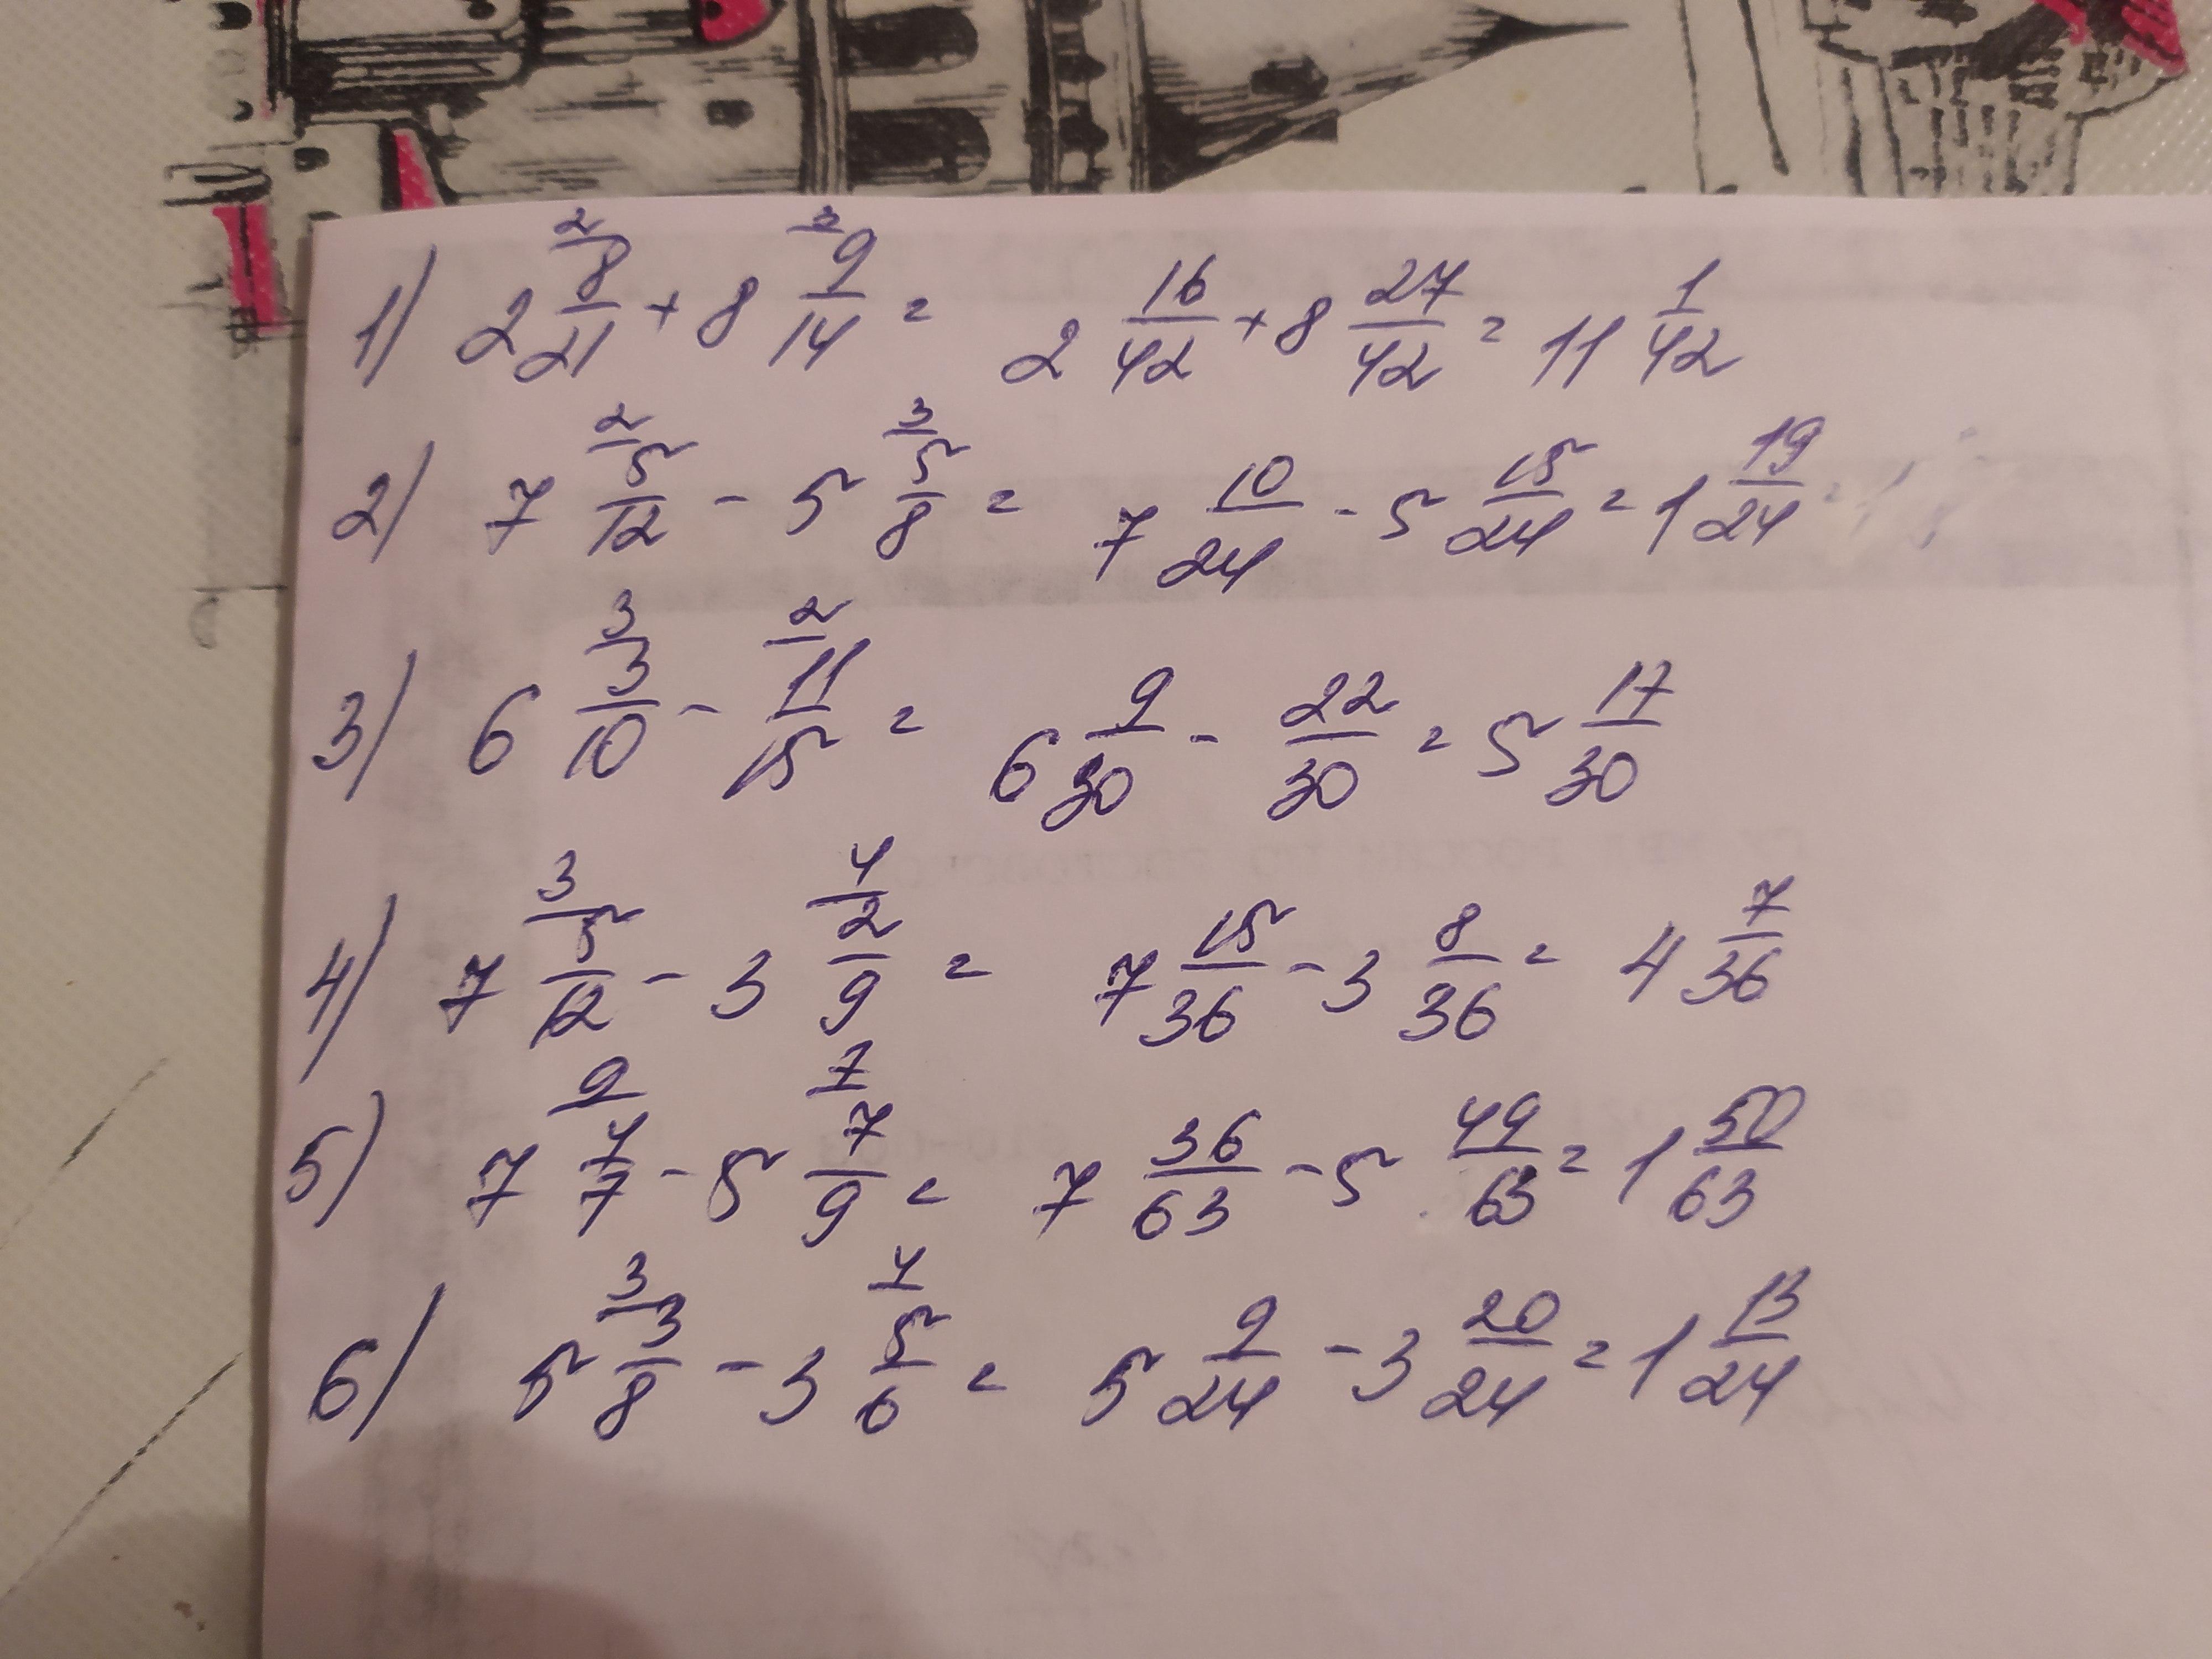 1) 2 8/21 (2) + 8 9/14 (3) = 2 16/42 + 8 27/42 = 11 1/42
2) 7 5/12 (2) - 5 5/8 (3) = 7 10/24 - 5 15/24 = 1 19/24
3) 6 3/10 (3) - 11/15 (2) = 6 9/30 - 22/30 = 5 17/30
4) 7 5/12 (3) - 3 2/9 (4) = 7 15/36 - 3 8/36 = 4 7/36
5) 7 4/7 (9) - 5 7/9 (7) = 7 36/63 - 5 49/63 = 1 50/63
6) 5 3/8 (3) - 3 5/6 (4) = 5 9/24 - 3 20/24 = 1 13/24